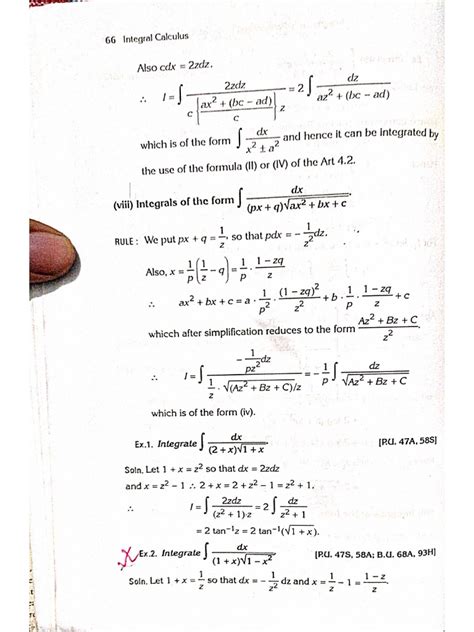 66 Integral Calculus
Also cdx = 2zdz.
∴ I = ∫ 2zdz / c{(ax² + (bc – ad))/c} z = 2 ∫ dz / (az² + (bc – ad))
which is of the form ∫ dx / (x² ± a²) and hence it can be integrated by
the use of the formula (II) or (IV) of the Art 4.2.
(viii) Integrals of the form ∫ dx / ((px + q)√(ax² + bx + c)).
RULE : We put px + q = 1/z, so that pdx = – 1/z² dz.
Also, x = 1/p (1/z – q) = 1/p · (1 – zq)/z
∴ ax² + bx + c = a · 1/p² · (1 – zq)²/z² + b · 1/p · (1 – zq)/z + c
whicch after simplification reduces to the form (Az² + Bz + C)/z²
∴ I = ∫ (– 1/(pz²) dz) / (1/z · √(Az² + Bz + C)/z) = – 1/p ∫ dz / √(Az² + Bz + C)
which is of the form (iv).
Ex.1. Integrate ∫ dx / ((2 + x)√(1 + x)) [P.U. 47A, 58S]
Soln. Let 1 + x = z² so that dx = 2zdz
and x = z² – 1 ∴ 2 + x = 2 + z² – 1 = z² + 1.
∴ I = ∫ 2zdz / ((z² + 1)·z) = 2 ∫ dz / (z² + 1)
= 2 tan⁻¹z = 2 tan⁻¹(√(1 + x).
Ex.2. Integrate ∫ dx / ((1 + x)√(1 – x²)) [P.U. 47S, 58A; B.U. 68A, 93H]
Soln. Let 1 + x = 1/z so that dx = – 1/z² dz and x = 1/z – 1 = (1 – z)/z